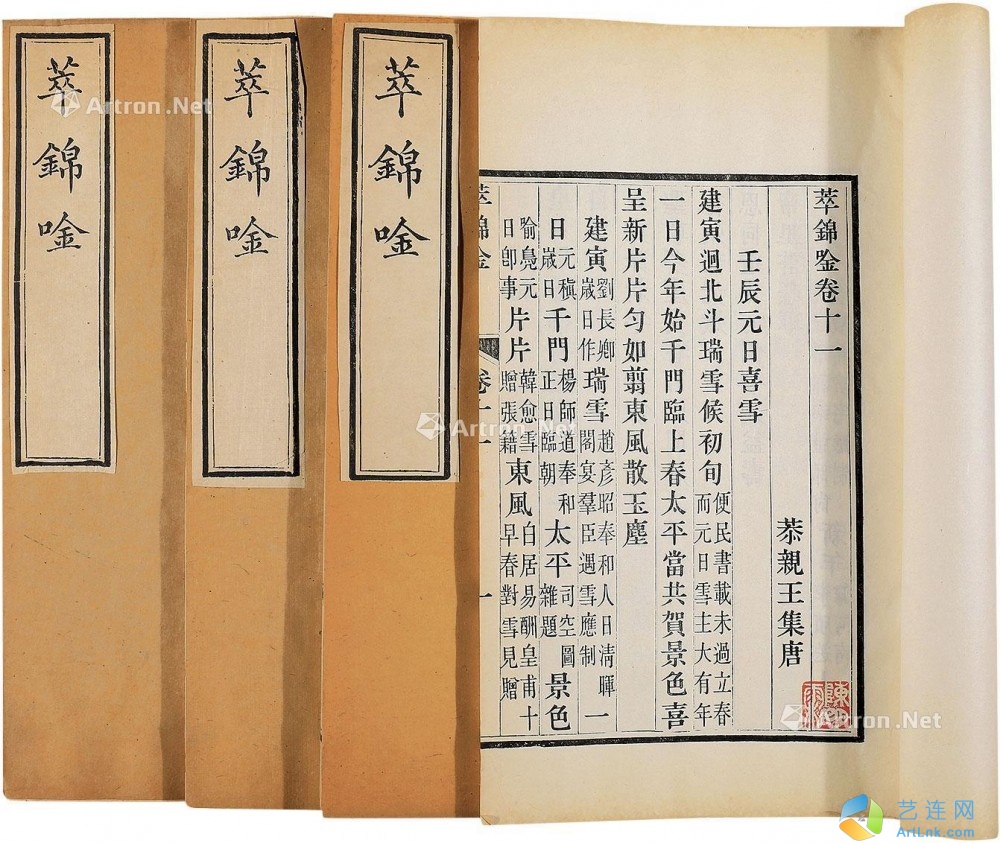 萃錦唫
萃錦唫
萃錦唫
萃錦唫卷十一
恭親王集唐
壬辰元日喜雪
建寅迴北斗瑞雪候初旬便民書載未過立春而元日雪主大有年
一日今年始千門臨上春太平當共賀景色喜
呈新片片勻如翦東風散玉塵
建寅劉長卿歲日作瑞雪趙彥昭奉和人日清暉閣宴羣臣遇雪應制一
日元稹歲日千門楊師道奉和正日臨朝太平司空圖雜題景色
喻鳧元日卽事片片韓愈雪贈張籍東風白居易酬皇甫十早春對雪見贈
萃錦唫 卷十一 一
Artron.Net
Artron.Net
Artron.Net
艺连网
ArtLnk.com